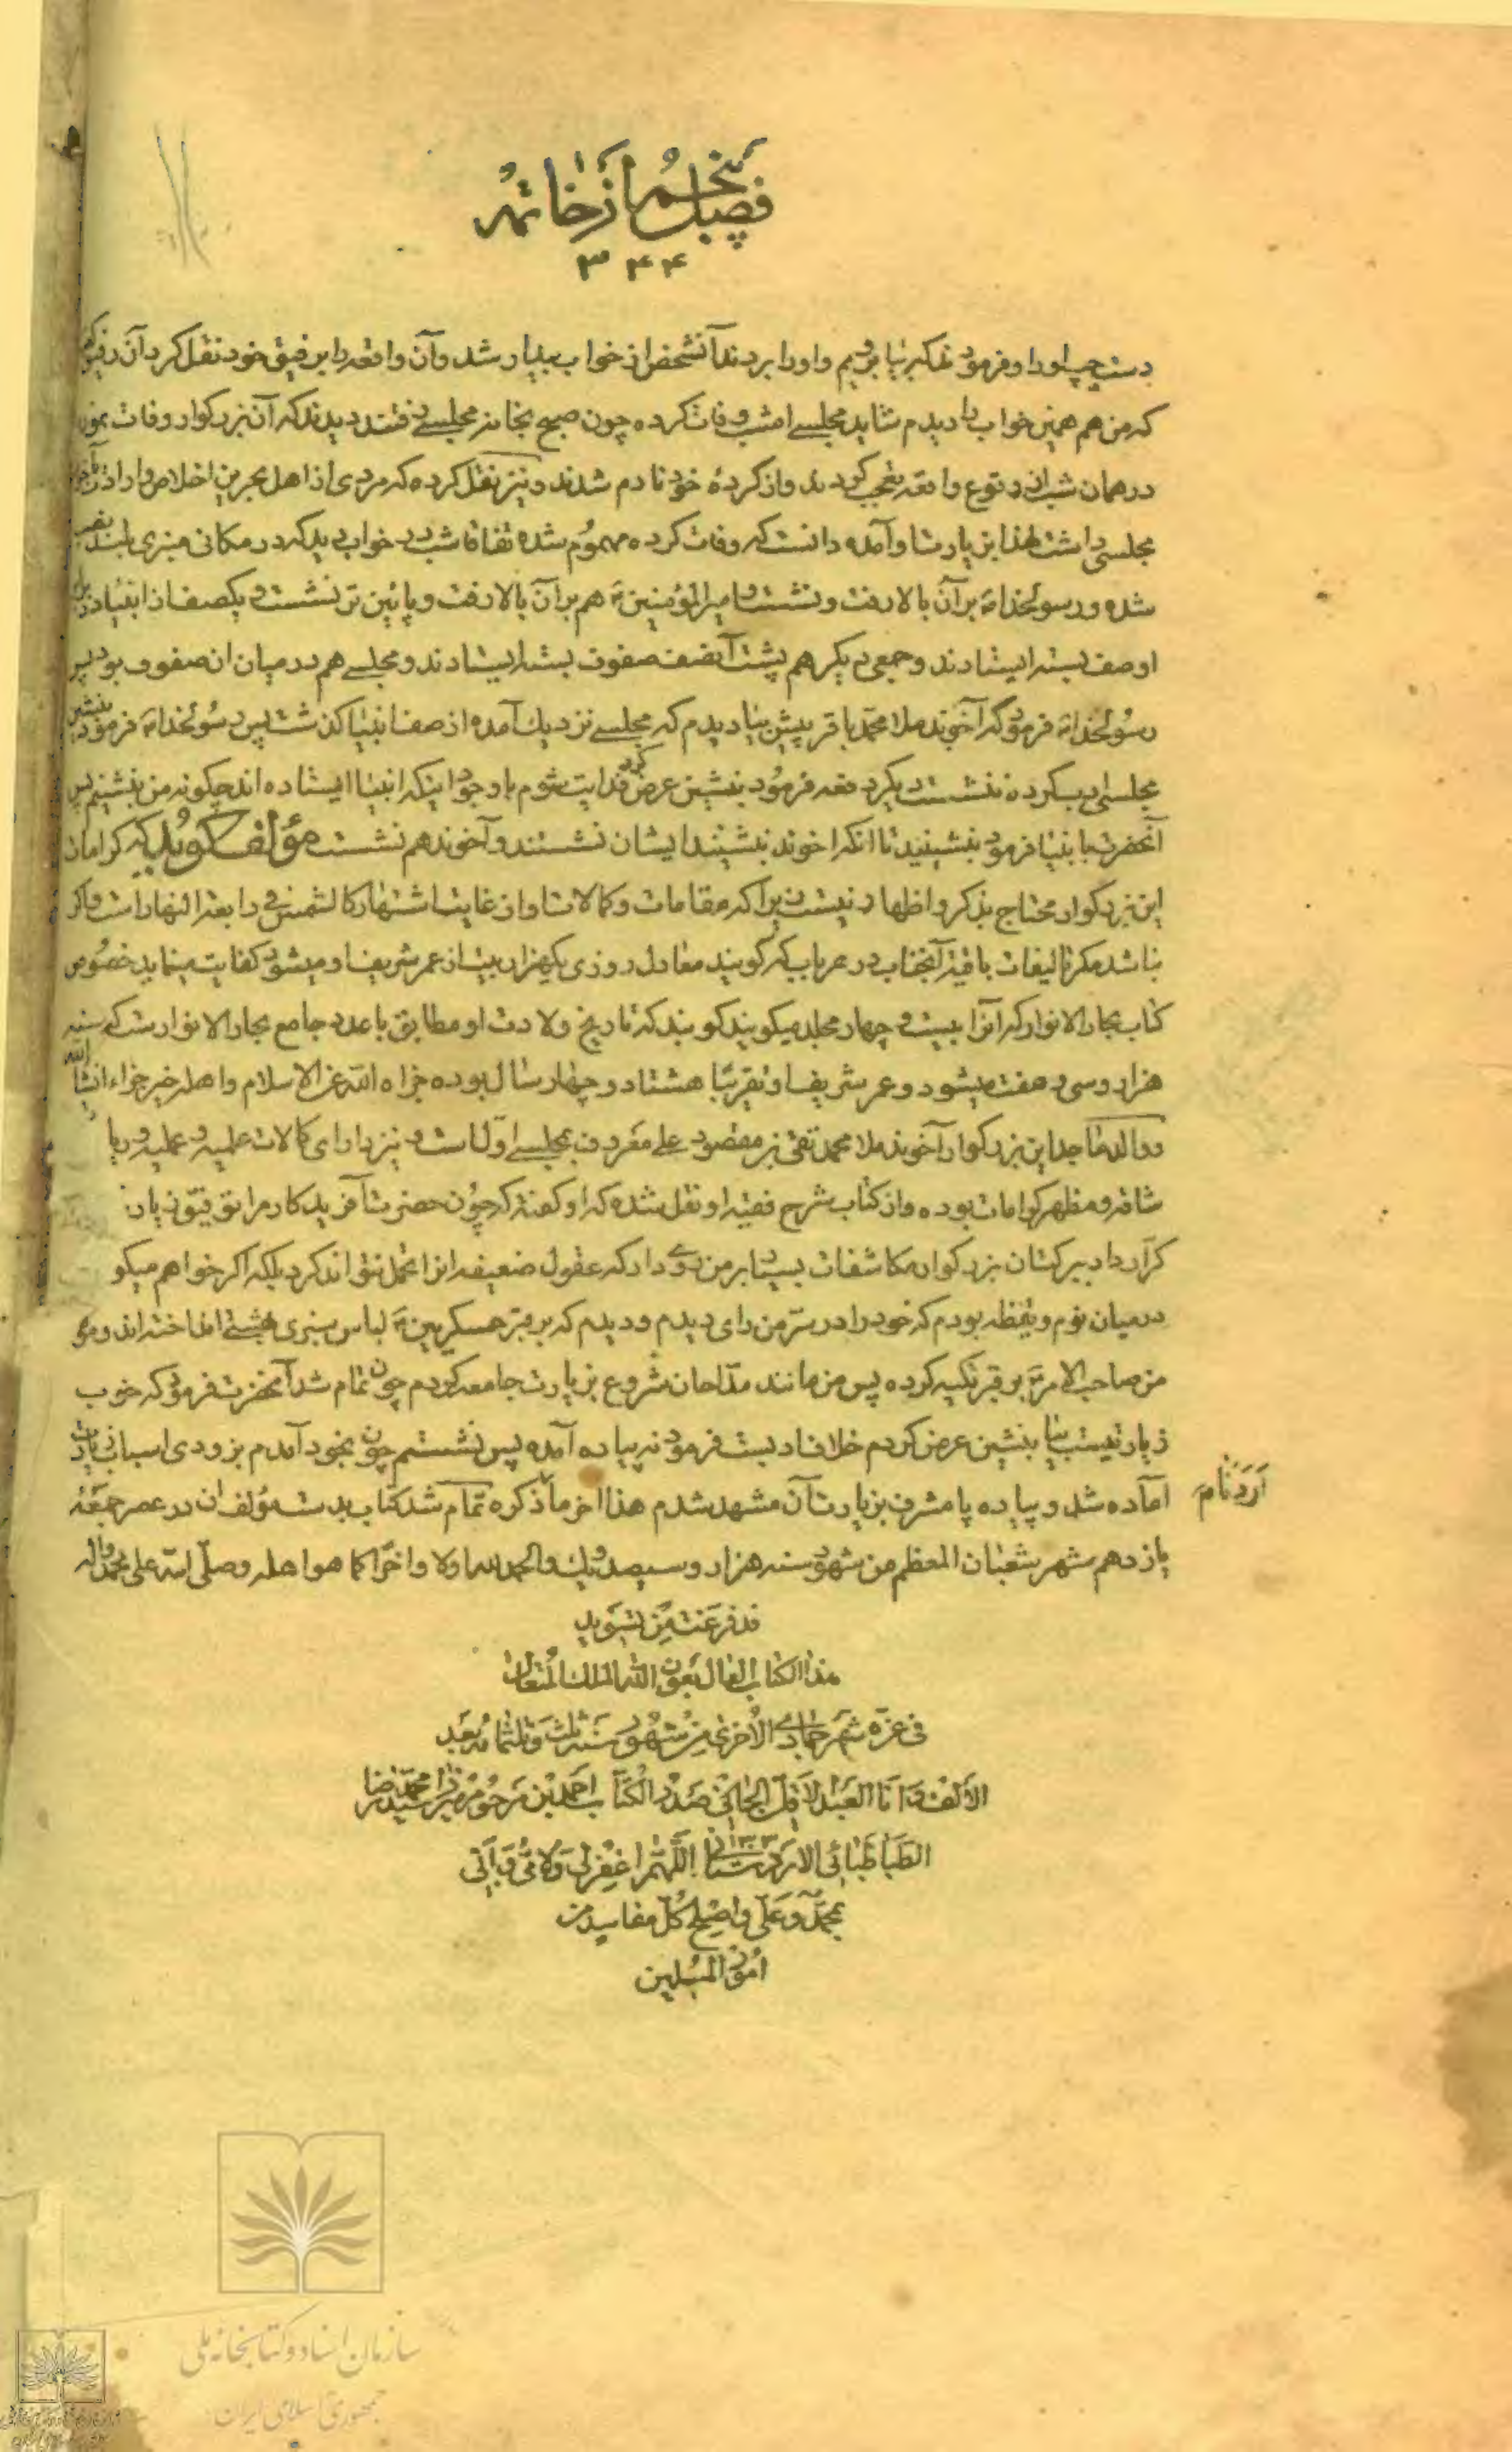 فصل پنجم از خاتمه
۳۴۴
دست چپ او را و فرمودند که بیا برویم و او را بردند آنشخص از خواب بیدار شد و آن واقعه را برفیق خود نقل کرد آن رفیق گفت
که من هم همین خواب را دیدم شاید مجلسی امشب وفات کرده چون صبح بخانه مجلسی رفتند دیدند که آن بزرگوار وفات نموده
در همان شب از وقوع واقعه تعجب کردند و از کردهٔ خود نادم شدند و نیز نقل کرده که مردی از اهل بحرین اخلاص و ارادت بآخوند
مجلسی داشت لهذا بزیارت او آمده دانست که وفات کرده مهموم شده اتفاقا شب در خواب دید که در مکانی منبری بلند نصب
شده و رسولخدا ص بر آن بالا رفت و نشست و امیرالمؤمنین ع هم بر آن بالا رفت و پائین تر نشست و یکصف از انبیاء در برابر
او صف بسته ایستادند و جمعی دیگر هم پشت آنصف صفوف بسته ایستادند و مجلسی هم در میان ان صفوف بود پس
رسولخدا ص فرمود که آخوند ملا محمد باقر پیش بیا دیدم که مجلسی نزدیک آمده از صف انبیا گذشت پس رسولخدا ص فرمود بنشین
مجلسی ننشست دیگر دفعه فرمود بنشین عرض کرد فدایت شوم با وجود اینکه انبیا ایستاده اند چگونه من بنشینم پس
آنحضرت بانبیا فرمود بنشینید تا انکه اخوند بنشیند ایشان نشستند و آخوند هم نشست مؤلف گوید که کرامات
این بزرگوار محتاج بذکر و اظهار نیست زیرا که مقامات و کمالات او از غایت اشتهار کالشمس فی رابعة النهار است و اگر
نباشد مگر تالیفات باقیهٔ آنجناب در هر باب که گویند معادل روزی یکهزار بیت از عمر شریف او میشود کفایت مینماید خصوص
کتاب بحار الانوار که آنرا بیست و چهار مجلد میگویند گویند که تاریخ ولادت او مطابق با عدد جامع بحار الانوار است که سنه
هزار و سی و هفت میشود و عمر شریف او تقریبا هشتاد و چهار سال بوده جزاه الله عن الاسلام و اهله خیر جزاء انشاء الله
و والد ماجد این بزرگوار آخوند ملا محمد تقی بن مقصود علی معروف بمجلسی اول است و نیز دارای کمالات علمیه و عملیه و ریا
شاقه و مظهر کرامات بوده و از کتاب شرح فقیه او نقل شده که او گفته که چون حضرت آفریدگار مرا توفیق زیارت
کرار داد ببرکت آن بزرگوار مکاشفات بسیار بر من روی داد که عقول ضعیفه انرا تحمل نتواند کرد بلکه اگر خواهم میگو
در میان نوم و یقظه بودم که خود را در سر من رای دیدم و دیدم که بر قبر عسکریین ع لباس سبزی بهشتی انداخته اند و مو
من صاحب الامر ع بر قبر تکیه کرده پس من مانند مداحان شروع بزیارت جامعه کردم چون تمام شد آنحضرت فرمود که خوب
زیارتیست بیا بنشین عرض کردم خلاف ادبست فرمود نه پیاده آمده پس نشستم چون بخود آمدم بزودی اسباب زیارت
آماده شد و پیاده پا مشرف بزیارت آن مشهد شدم هذا اخر ما ذکره تمام شد کتاب بدست مؤلف ان در عصر جمعهٔ
یازدهم شهر شعبان المعظم من شهور سنه هزار و سیصد و یک و الحمد لله اولا و اخرا کما هو اهله و صلی الله علی محمد و اله
قد فرغت من تسوید
هذا الکتاب بعون الله الملک المتعال
فی غره شهر جمادی الاخری من شهور سنه ثلث و ثلثمائه بعد
الالف و انا العبد الاقل الجانی احمد بن مرحوم میرزا سید محمد رضا
الطباطبائی الاردستانی ۱۳۰۳ اللهم اغفر لی و لامی و ابی
بمحمد و علی و اصلح کل فاسد من
امور المسلمین
سازمان اسناد و کتابخانه ملی
جمهوری اسلامی ایران